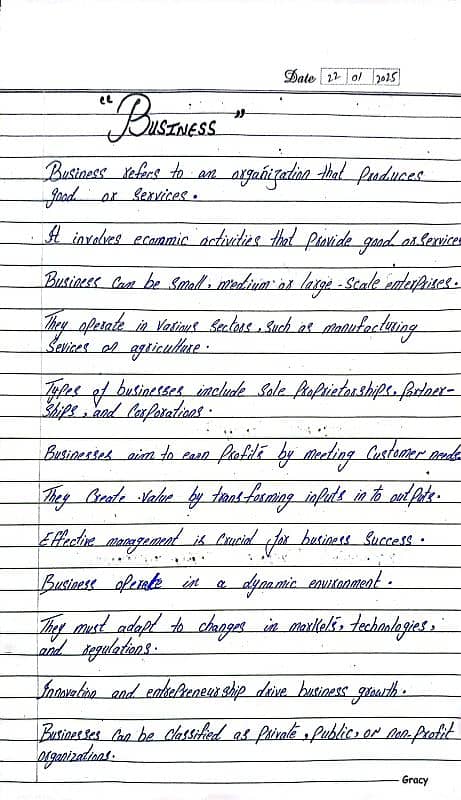 Date 22 01 2025
"Business"
Business refers to an organization that produces
good or services.
It involves ecommic activities that provide good or services
Business can be small, medium or large-scale enterprises.
They operate in various sectors, such as manufacturing
Sevices or agriculture.
Types of businesses include sole proprietorships, partner-
ships, and corporations.
Businesses aim to earn profits by meeting customer needs
They create value by transforming inputs in to outputs.
Effective management is crucial for business success.
Business operate in a dynamic environment.
They must adapt to changes in markets, technologies,
and regulations.
Innovation and entrepreneurship drive business growth.
Businesses can be classified as private, public, or non-profit
organizations.
Gracy